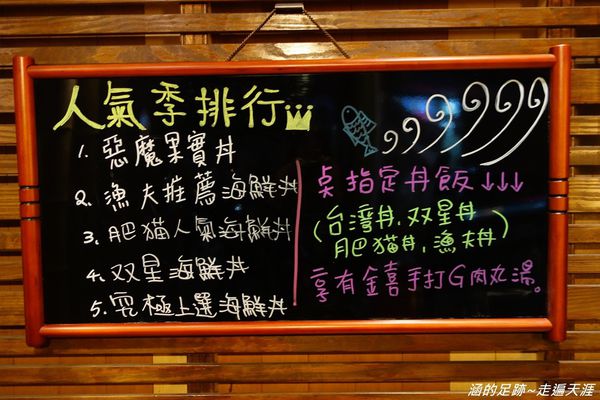 人氣季排行
1. 惡魔果實丼
2. 漁夫推薦海鮮丼
3. 肥猫人氣海鮮丼
4. 双星海鮮丼
5. 究極上選海鮮丼
桌指定丼飯↓↓↓
(台灣丼, 双星丼
肥猫丼, 漁夫丼)
享有金喜手打G肉丸湯。
涵的足跡~走遍天涯